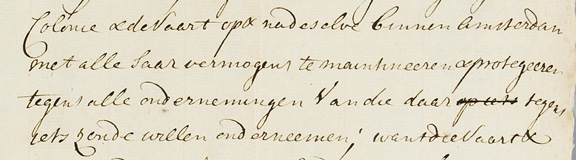 Colonie & de Vaart op & na deselve binnen Amsterdam
met alle haar vermogens te maintineeren & protegeeren
tegens alle ondernemingen van die daar op iets tegens
iets zoude willen onderneemen; want de Vaart &